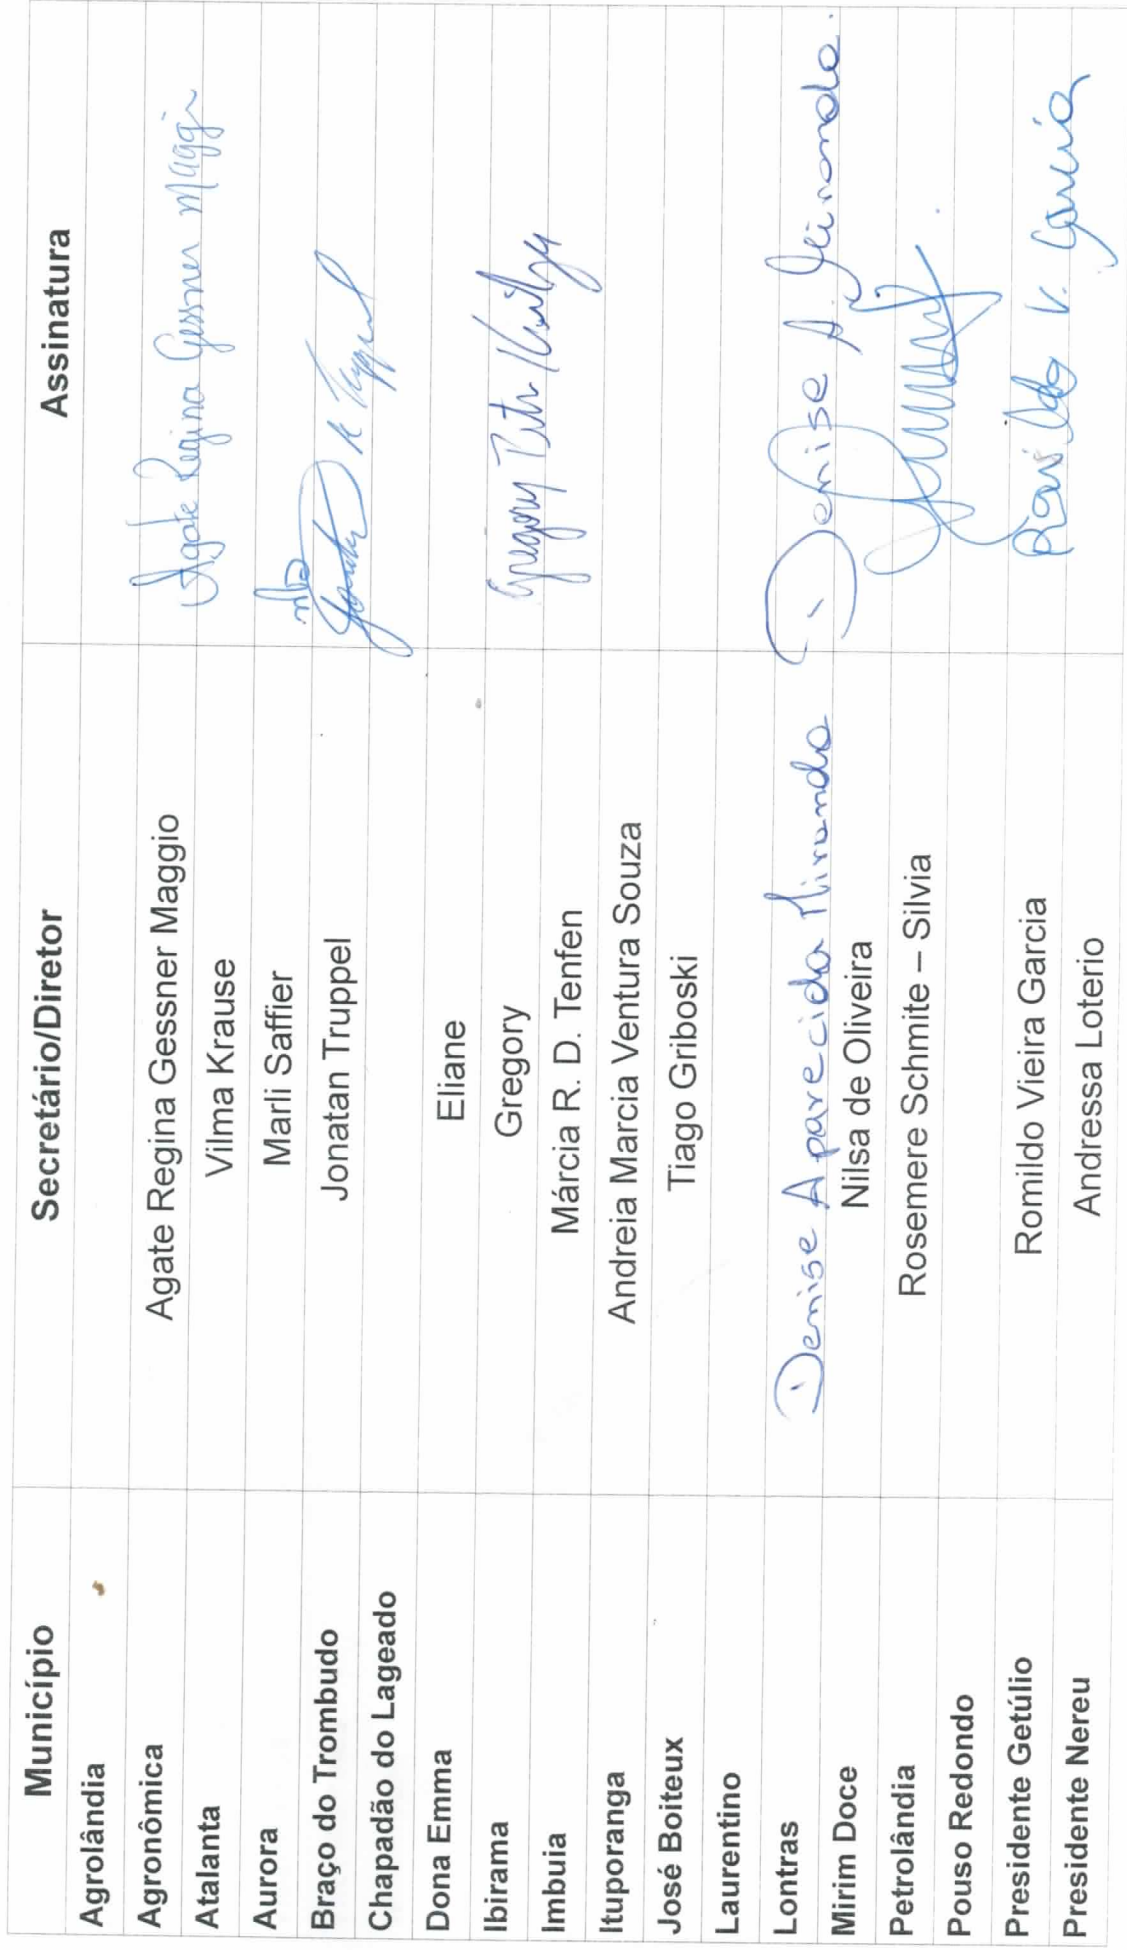 Município Secretário/Diretor Assinatura
Agrolândia
Agronômica Agate Regina Gessner Maggio Agate Regina Gessner Maggi
Atalanta Vilma Krause
Aurora Marli Saffier
Braço do Trombudo Jonatan Truppel
Chapadão do Lageado
Dona Emma Eliane
Ibirama Gregory Gregory
Imbuia Márcia R. D. Tenfen
Ituporanga Andreia Marcia Ventura Souza
José Boiteux Tiago Griboski
Laurentino
Lontras Denise Aparecida Miranda Denise A. Miranda.
Mirim Doce Nilsa de Oliveira
Petrolândia Rosemere Schmite – Silvia
Pouso Redondo
Presidente Getúlio Romildo Vieira Garcia Romildo V. Garcia
Presidente Nereu Andressa Loterio